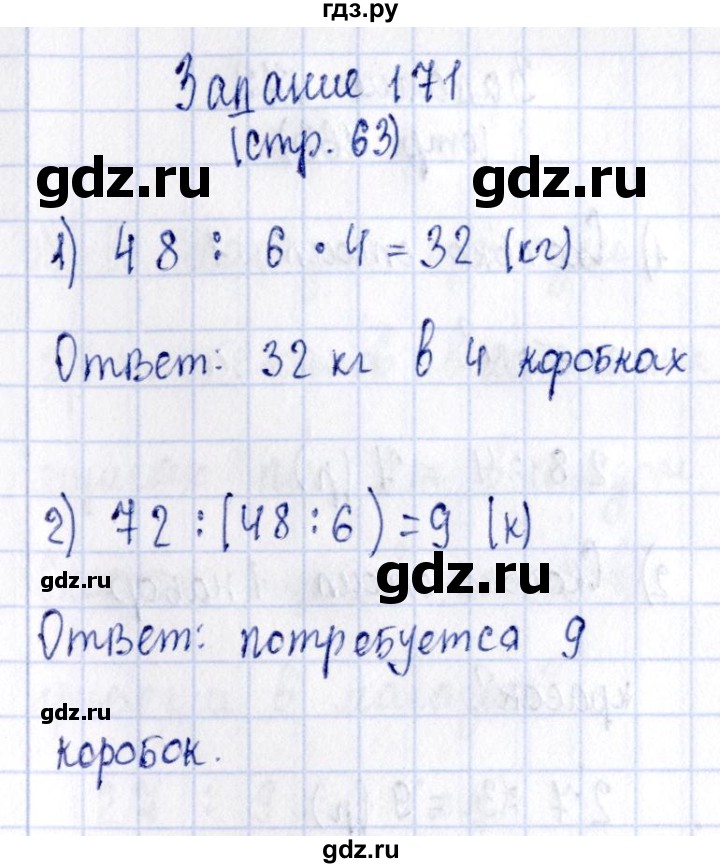 гдз.ру
Задание 171
(стр. 63)
gdz.ru
gdz.ru
1) 48 : 6 · 4 = 32 (кг)
gdz.ru
gdz.ru
Ответ: 32 кг в 4 коробках
2) 72 : (48 : 6) = 9 (к)
gdz.ru
gdz.ru
Ответ: потребуется 9
gdz.ru
коробок.
gdz.ru
gdz.ru